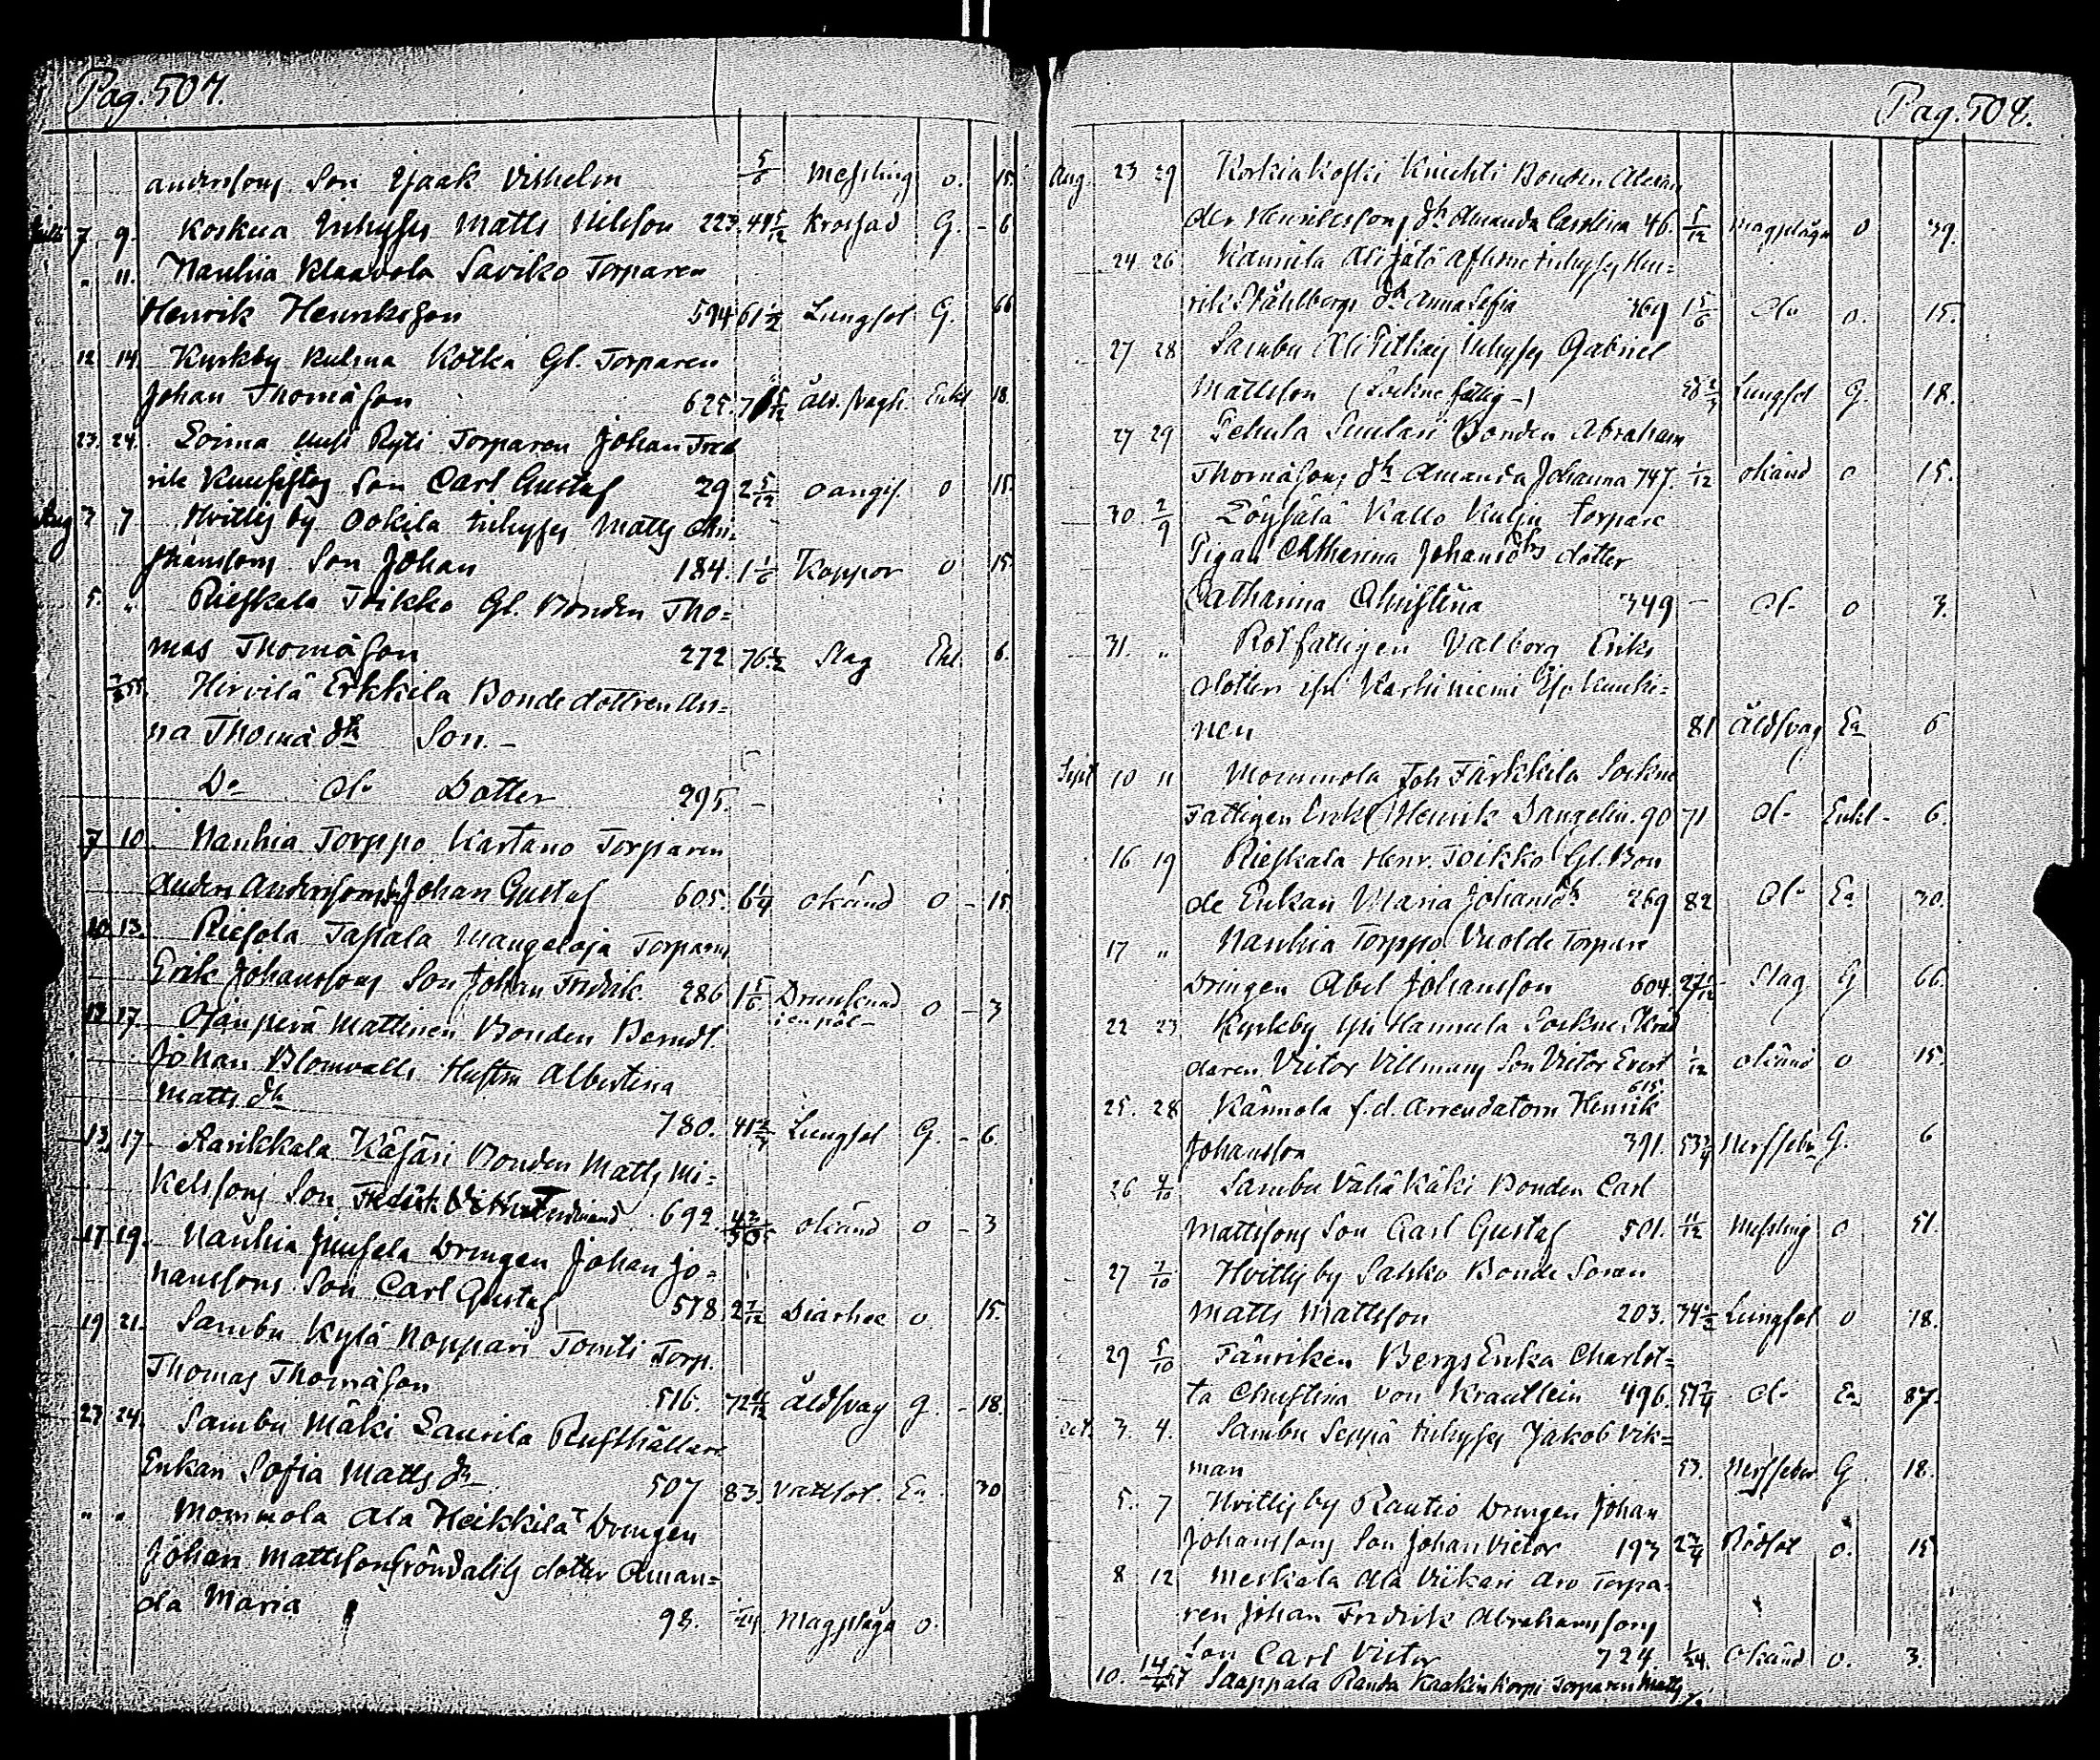 Pag. 507.
Anderssons Son Isaak Vilhelm 5/6 Messling o. 15.
Juli 7 9. Koskua Inhyses Matts Nilsson 223. 41 5/12 Krossad G. - 6
" 11. Nauhia Klaavola Saviko Torparen
Henrik Henriksson 594 61 1/2 Lungsot G. 66
12 14 Kyrkby Kulma Kotka Gl. Torparen
Johan Thomäson 625. 5/12 Åld. svagh. Enkl 18.
23. 24. Loima Uusi Ryti Torparen Johan Fred
rik Son Carl Gustaf 29 2 5/12 oangif. o 15.
Aug 3 7 Hvittis by Ookila Inhyses Matts Chri-
stianssons Son Johan 184. 1 1/6 Koppor o 15.
5. " Rieskala Toikko Gl. Bonden Tho=
mas Thomäson 272 76 1/2 Slag Ekl. 6.
Hirvilä Erkkila Bondedottren An=
na Thomä dr Son -
Do do Dotter 295. -
7 10 Nauhia Torppo Kartano Torparen
Anders Anderssons Johan Gustaf 605. 6 1/4 okänd o - 15
10 13. Riesola Tassala Mangeloja Torparens
Erik Johanssons Son Johan Fredrik. 286 1 5/6 Drunknad o - 3
i en pöl -
12 17. Ojanperä Mattinen Bonden Berndt.
Johan Blomvalls Hustru Albertina
Matts dr 780. 41 3/4 Lungsot G. - 6.
13 17 Sarikkala Käjäri Bonden Matts Mi=
kelssons Son Fredrik Ferdinand 692. okänd o - 3
17 19. Nauhia Jussela Drengen Johan Jo=
hanssons Son Carl Gustaf 578 2 7/12 Diarhee o 15.
19 21. Sambu Kylä Noppari Tomti Torp.
Thomas Thomäson 516. 72 Åldsvag g. - 18.
23 24. Sambu Mäki Laurila Rusthållare
Enkan Sofia Matts dr 507 83. Vattsot. En. - 30
" " Mommola Ala Heikkilä Drengen
Johan Mattsson Gröndahls dotter Aman=
da Maria 98. 1/24. Magplåga o.
Pag. 508.
Aug 23 29 Korkiakoski Knihti Bonden Alexan
der Henrikssons dr Amanda Carolina 46. 5/12 Magplåga o 39.
24 26 Kännilä Alijätö Afsked. Inhyses Hen=
rik Ståhlbergs dr Anna Sofia 369 1 5/6 do o. 15.
27 28 Sambu Ali Pitkäs Inhyses Gabriel
Mattsson (Sockne fattig -) Lungsot G. 18.
27 29 Pehula Suulari Bonden Abraham
Thomäsons dr Amanda Johanna 747. 1/12 okänd o 15.
30. 2/9 Löysälä Kallo Kulju Torpare
Pigan Catherina Johansdrs dotter
Catharina Christina 349 - do o 3.
31. " Rotfattigen Valborg Eriks
dotter ifrån Karhiniemi
nen 81 Åldsvag Ea 6
Sept 10 11 Mommola Joh Järkkilä Sockne
Fattigen Erik Henrik Dangelin. 90 71 do Enkl - 6.
16 19 Rieskala Henr. Toikko Gl. Bon
de Enkan Maria Johansdr 269 82 do Ea 30.
17 " Nauhia Torppo Vuolde Torpare
Drengen Abel Johansson 604. 27 Slag G 66.
22 23 Kyrkby ifrån Hannula Sockne Skräd
daren Victor Villmans Son Victor Evert 1/12 okänd o 15.
615.
25. 28 Kännola f.d. Arrendatorn Henrik
Johansson 391. 53 3/4 Nerffeber G. 6
26 4/10 Sambu Vähä Käki Bonden Carl
Mattssons Son Carl Gustaf 501. 11/12 Messling o 51.
27 7/10 Hvittis by Sahko Bonde Sonen
Matts Mattsson 203. 34 1/2 Lungsot o 18.
29 5/10 Fänriken Bergs Enka Charlot=
ta Christina von Krautlein 496. do Ea 87.
Oct. 3. 4. Sambu Seppä Inhyses Jakob Vik=
man 53. Nerffeber G. 18.
5. 7 Hvittis by Rautio Drengen Johan
Johanssons Son Johan Victor 193 2 3/4 Rödsot o. 15
8 12 Meskala Ala Viikari Aro Torpa-
ren Johan Fredrik Abrahamssons
Son Carl Victor 724. 1/24. Okänd o. 3.
10. 14/4 57 Saappala Randa Kaakinkorpi Torparen Matts